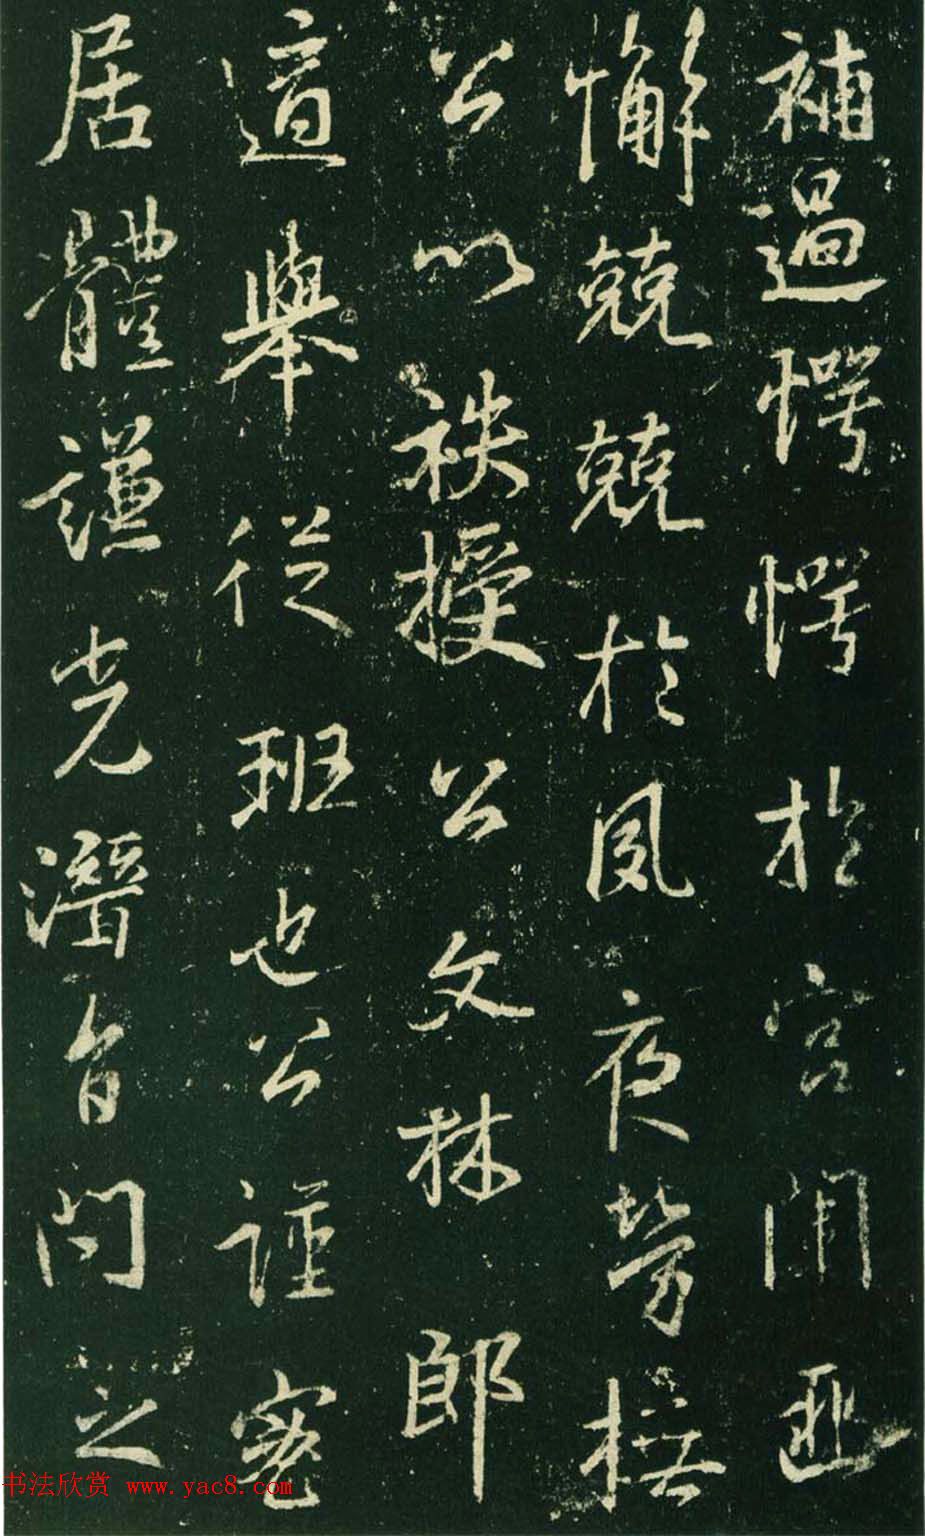 補過愕愕於宮闈匪
懈兢兢於夙夜勞
公以秩授公文林郎
道舉從班也公謹密
居體謙光潛旨問之
书法欣赏 www.yac8.com